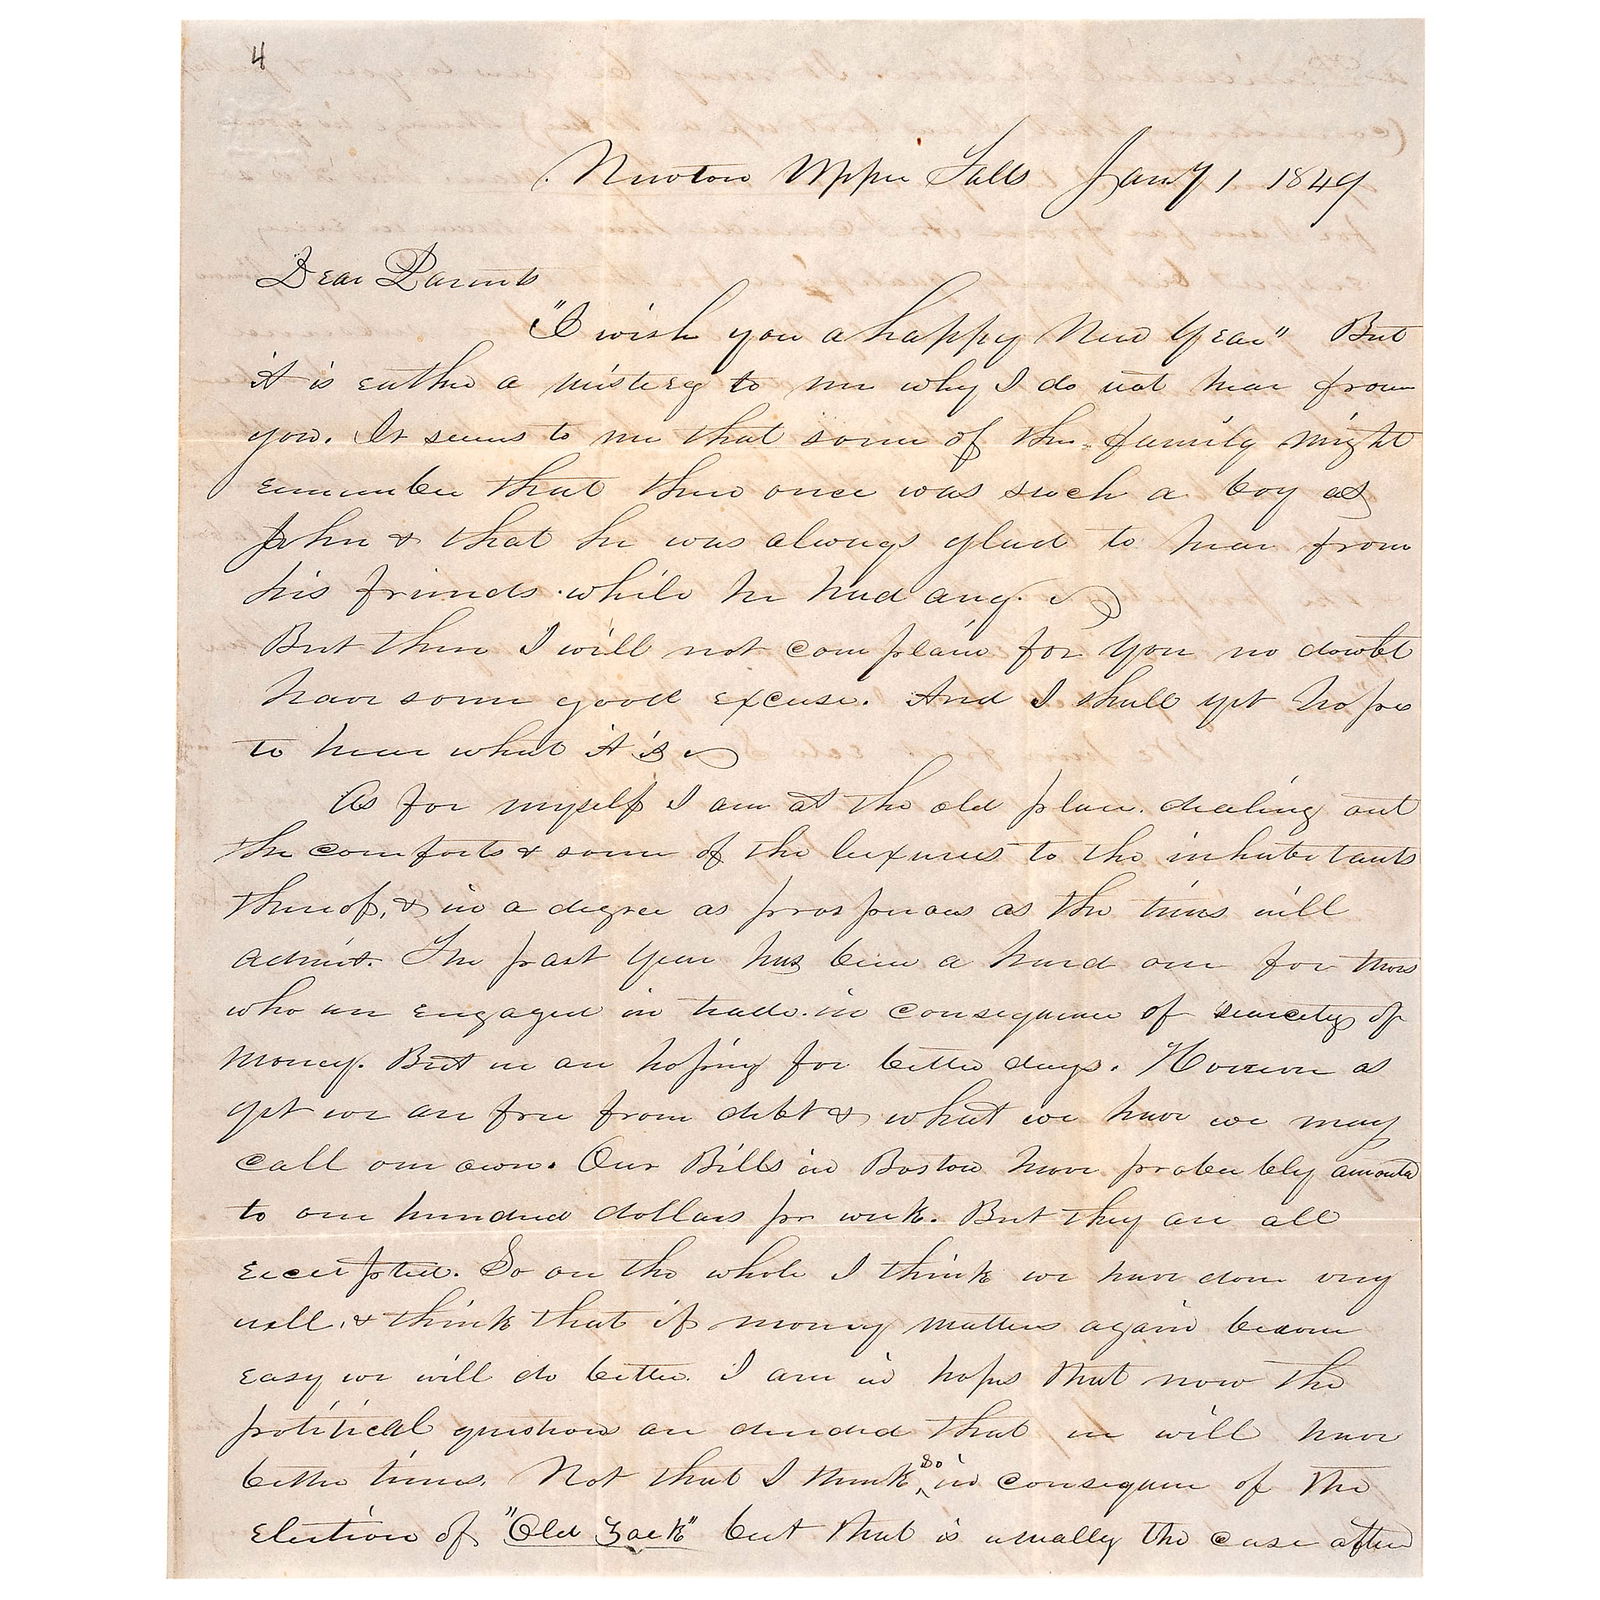 4
Newton Upper Falls Jany 1 1849
Dear Parents
"I wish you a happy New Year" But
it is rather a mistery to me why I do not hear from
you. It seems to me that some of the family might
remember that there once was such a boy as
John & that he was always glad to hear from
his friends while he had any.
But then I will not complain for you no doubt
have some good excuse. And I shall yet hope
to hear what it is
As for myself I am at the old place dealing out
the comforts & some of the luxuries to the inhabitants
thereof, & in a degree as prosperous as the times will
admit. The past year has been a hard one for those
who are engaged in trade in consequence of scarcety of
money. But we are hoping for better days. However as
yet we are free from debt & what we have we may
call our own. Our Bills in Boston have probably amounted
to one hundred dollars pr week. But they are all
receipted. So on the whole I think we have done very
well, & think that if money matters again become
easy we will do better. I am in hopes that now the
political questions are decided that we will have
better times. Not that I think so in consequence of the
Election of "Old Zack" but that is usually the case after